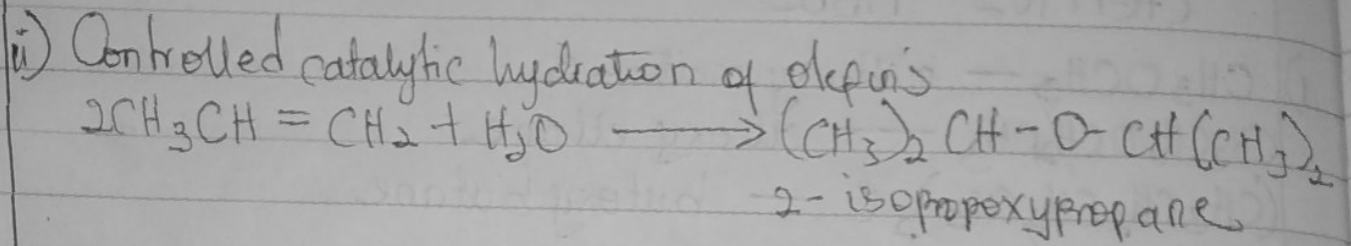 ii) Controlled catalytic hydration of olefins
2CH₃CH = CH₂ + H₂O ⟶ (CH₃)₂ CH - O - CH(CH₃)₂
2-isopropoxypropane